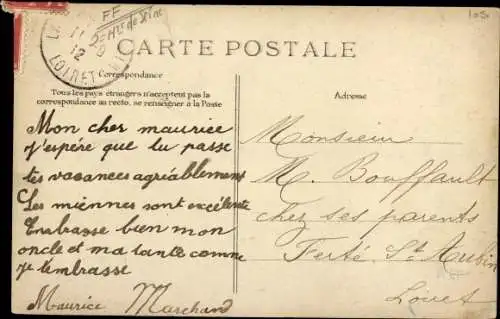 105
FF
Hts de Seine
LOIRET
11
12
CARTE POSTALE
Correspondance
Tous les pays étrangers n'acceptent pas la
correspondance au recto, se renseigner à la Poste
Adresse
Mon cher maurice
J'espére que tu passe
tes vacances agréablement
Les miennes sont excélente
Embrasse bien mon
oncle et ma tante comme
je t'embrasse
Maurice Marchand
Monsieur
M. Bouffault
chez ses parents
Ferté St Aubin
Loiret